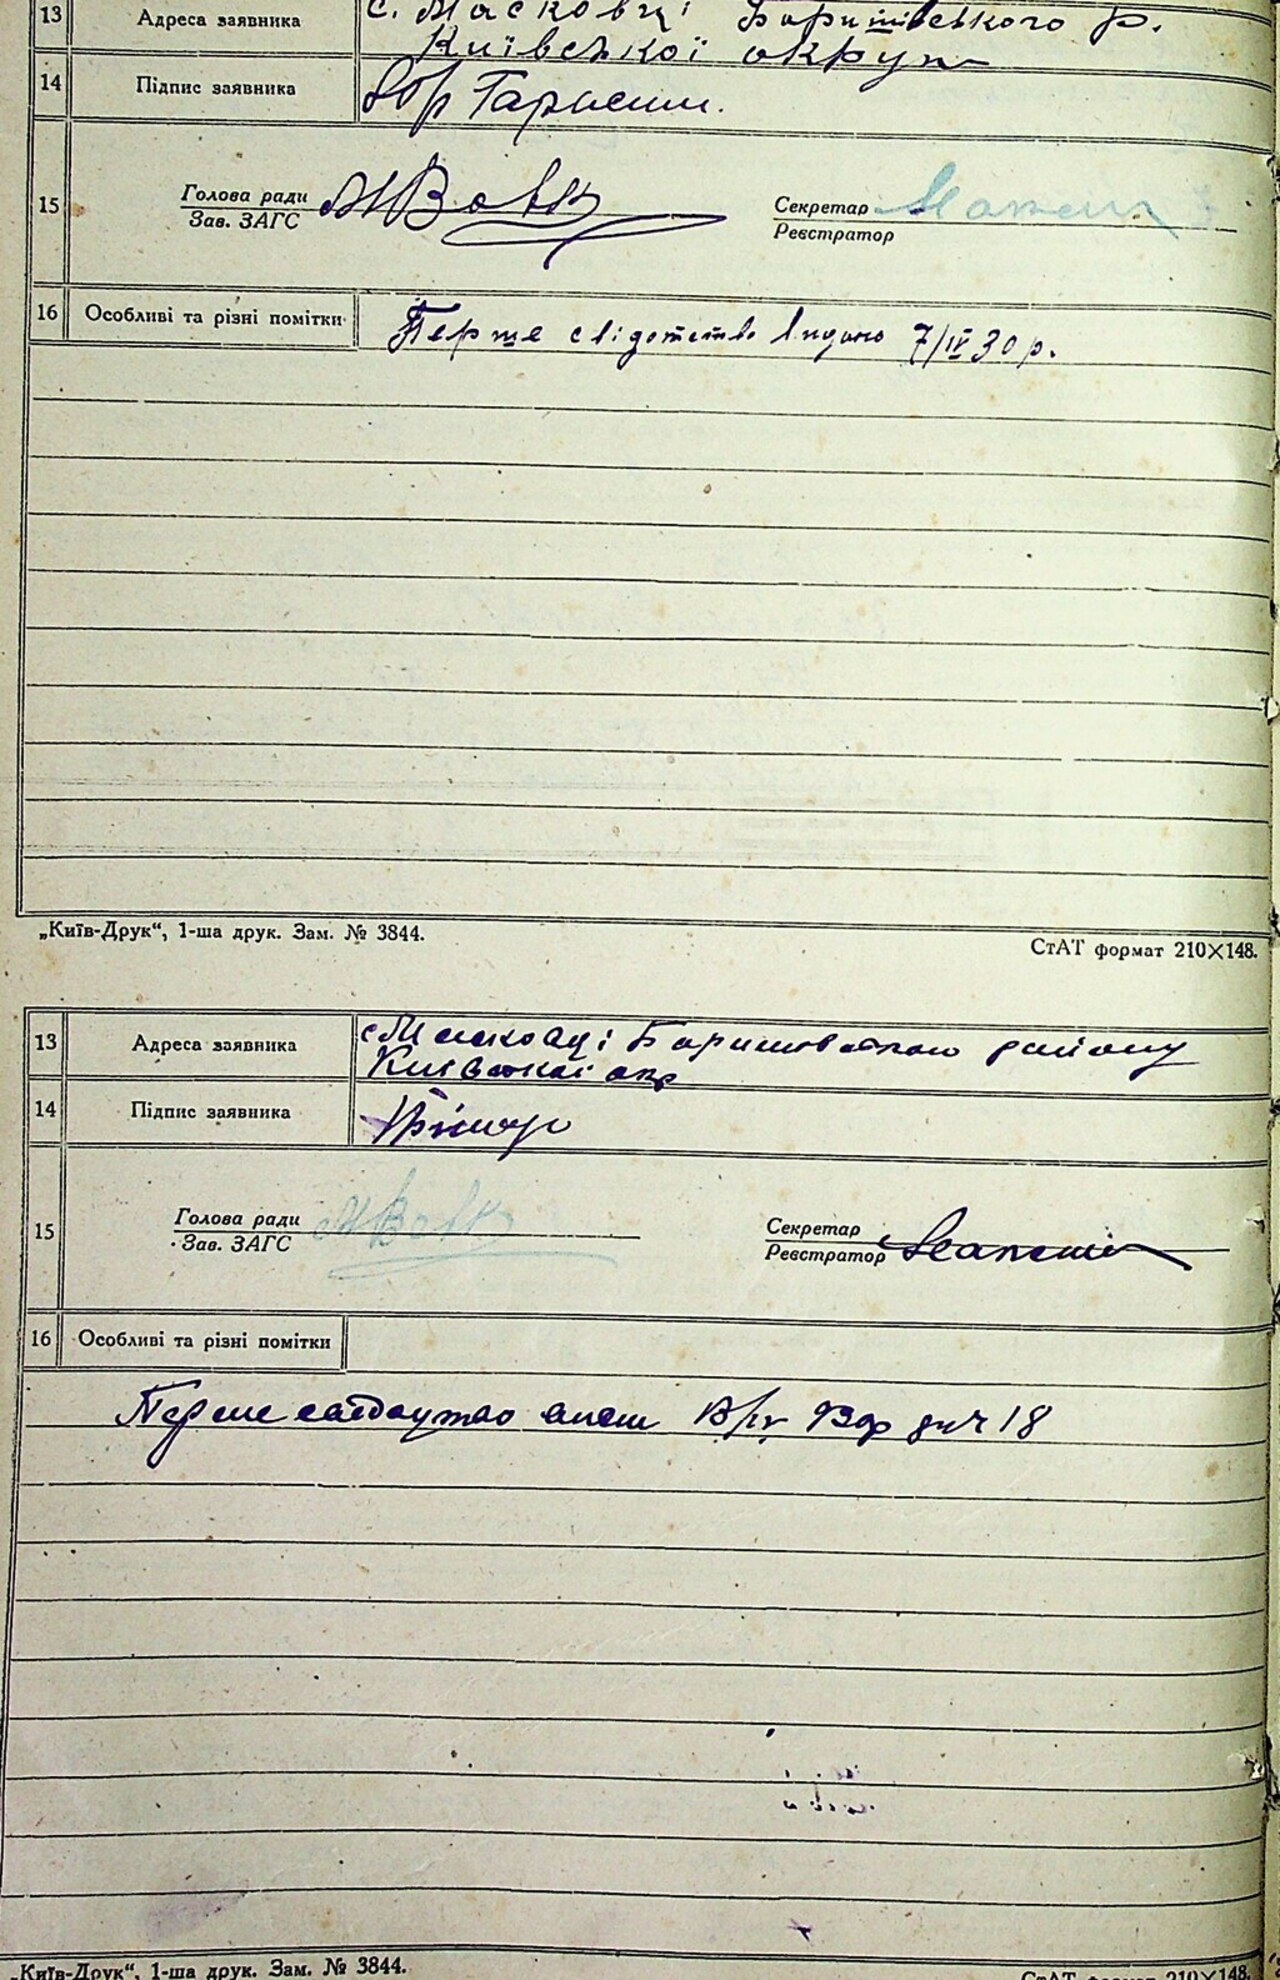 13 Адреса заявника с. Масковці Баришівського р.
Київської округи
14 Підпис заявника
15 Голова ради МВовк Секретар
Зав. ЗАГС Реєстратор
16 Особливі та різні помітки Перше свідотство видано 7/IV 30 р.
„Київ-Друк“, 1-ша друк. Зам. № 3844.
СтАТ формат 210×148.
13 Адреса заявника с Масковці Баришовського району
Київської окр
14 Підпис заявника
15 Голова ради МВовк Секретар
Зав. ЗАГС Реєстратор
16 Особливі та різні помітки
Перше 18
„Київ-Друк“, 1-ша друк. Зам. № 3844.
СтАТ формат 210×148.